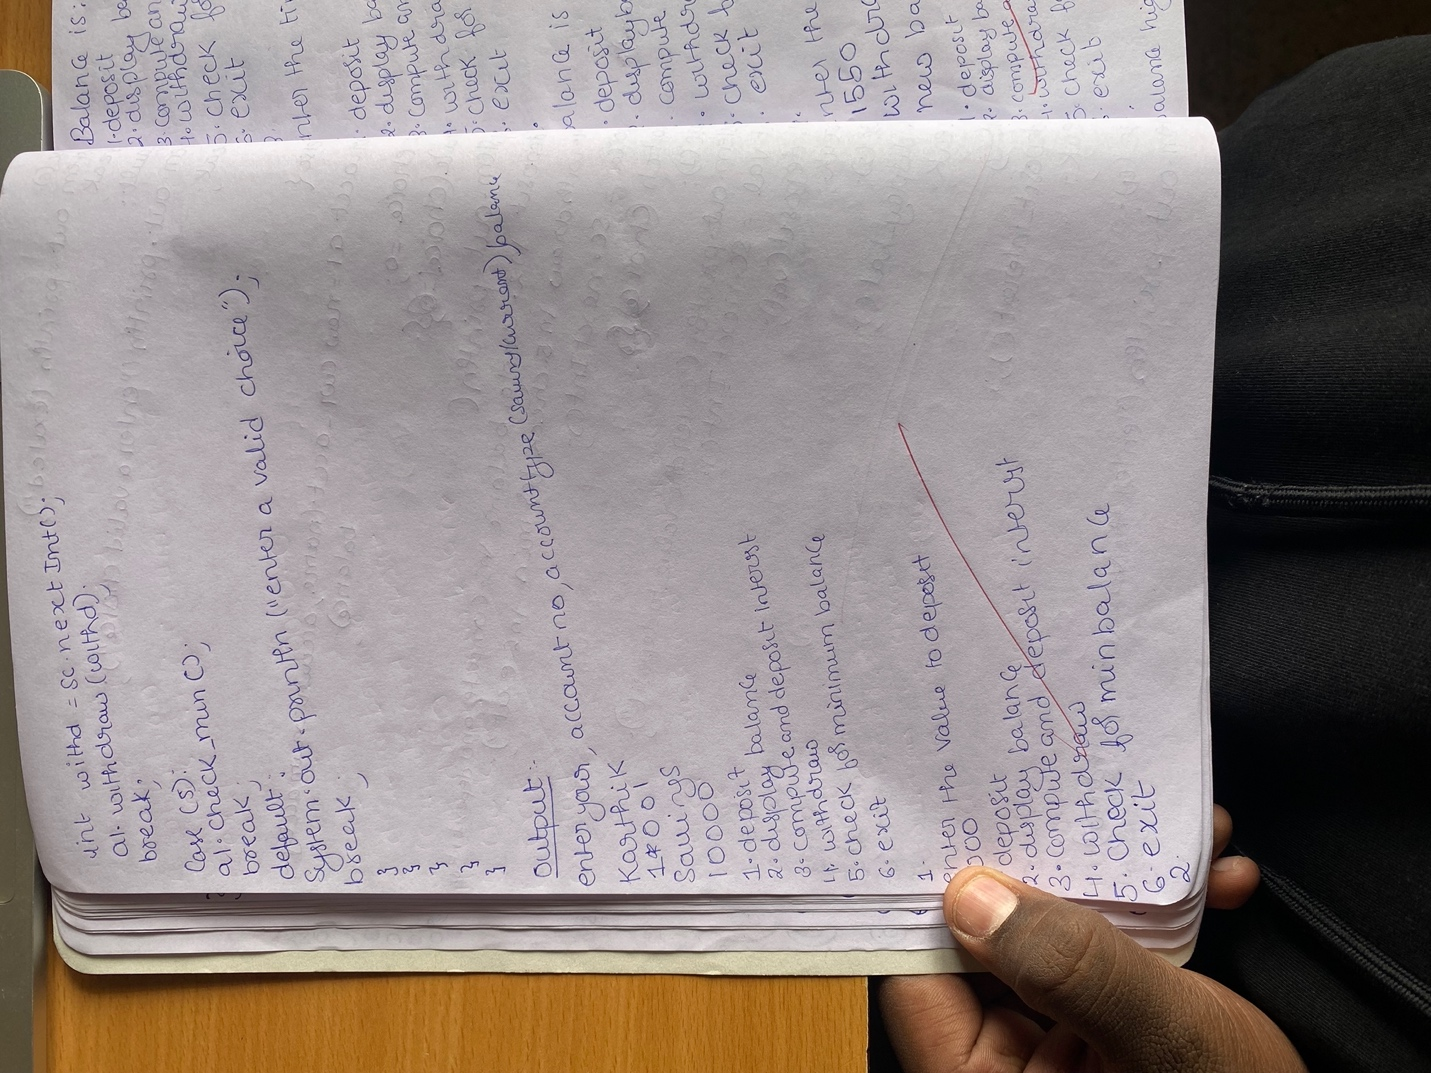 int withd = sc.nextInt();
a1.withdraw(withd);
break;
Case (5):
a1.check_min();
break;
default:
System.out.println("enter a valid choice");
break;
}
}
}
}
}
Output:-
enter your, account no, accounttype (saving/current), balance
Karthik
1001
Savings
10000
1. deposit
2. display balance
3. compute and deposit Interst
4. withdraw
5. check for minimum balance
6. exit
1.
enter the value to deposit
000
deposit
2. display balance
3. compute and deposit interst
4. withdraw
5. check for min balance
6. exit
2.
Balance is:
1. deposit
2. display
3. compute
4. withdraw
5. check
6. exit
the
deposit
2. display
3. compute
4. withdraw
check for
exit
is
deposit
display
compute
check
exit
the
1550
withdr
new
1. deposit
2. display
3. compute
4. withdraw
5. check
6. exit